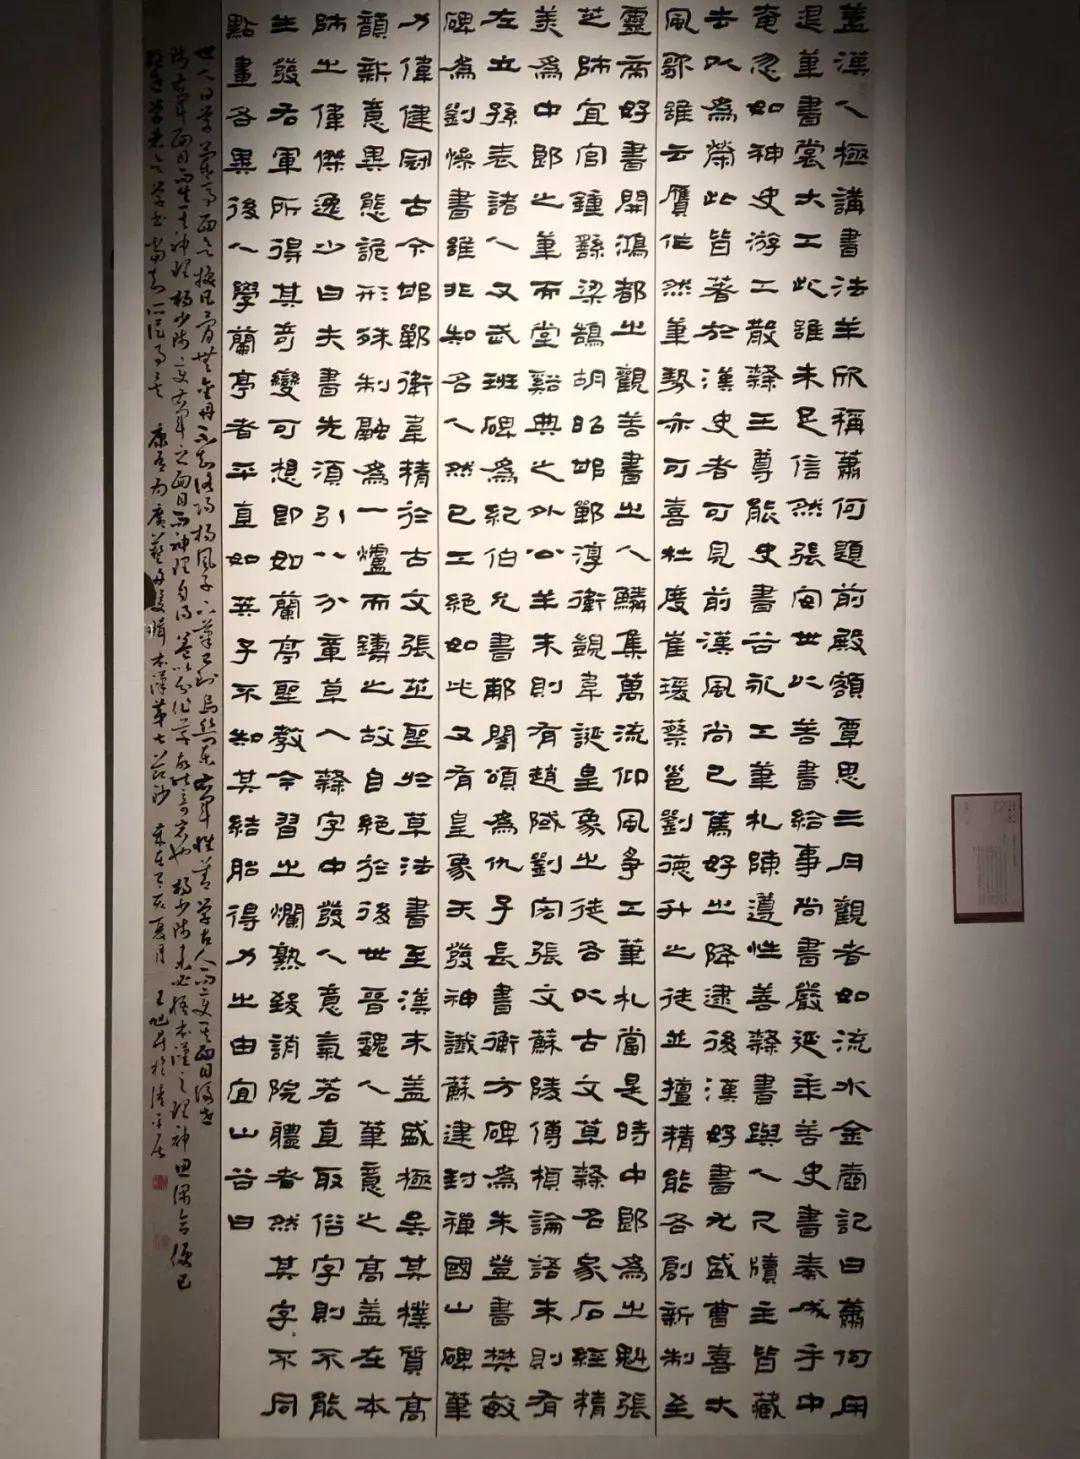 蓋漢人極講書法羊欣稱蕭何題前殿額覃思三月觀者如流水金壺記曰蕭何用
退筆書裳大工此雖未足信然張安世以善書給事尚書嚴延年善史書奏成手中
奄忽如神史游工散隸王尊能史書谷永工筆札陳遵性善隸書與人尺牘主皆藏
去以為榮此皆著於漢史者可見前漢風尚已篤好之降逮後漢好書尤盛曹喜大
風歌雖云贋作然筆勢亦可喜杜度崔瑗蔡邕劉德升之徒並擅精能各創新制至
靈帝好書開鴻都之觀善書之人鱗集萬流仰風爭工筆札當是時中郎為之魁張
芝師宜官鍾繇梁鵠胡昭邯鄲淳衛覬韋誕皇象之徒各以古文草隸名家石經精
美為中郎之筆而堂谿典之外公羊末則有趙䧕劉宏張文蘇陵傅楨論語末則有
左立孫表諸人又武班碑為紀伯允書郙閣頌為仇子長書衡方碑為朱登書樊敏
碑為劉懆書雖非知名人然已工絕如此又有皇象天發神讖蘇建封禪國山碑筆
力偉健冠古今邯鄲衛韋精於古文張芝聖於草法書至漢末蓋盛極矣其樸質高
韻新意異態詭形殊制融為一爐而鑄之故自絕於後世晉魏人筆意之高蓋在本
師之偉傑逸少曰夫書先須引八分章草入隸字中發人意氣若直取俗字則不能
生發右軍所得其奇變可想即如蘭亭聖教今習之爛熟致誚院體者然其字不同
點畫各異後人學蘭亭者平直如算子不知其結胎得力之由宜山谷曰
世人日學蘭亭面欲換凡骨無金丹不知洛陽楊風子下筆已到烏絲闌右軍惟善學古人而變其面目後世
師右軍面目而失其神理楊少師變右軍之面目而神理自得蓋以分作草故能奇宕也楊少師未必悟本漢之理神思偶合便已
絕世學者欲學書當知所從事矣 康有為廣藝舟雙楫本漢第七節抄 歲在己亥夏月 王旭